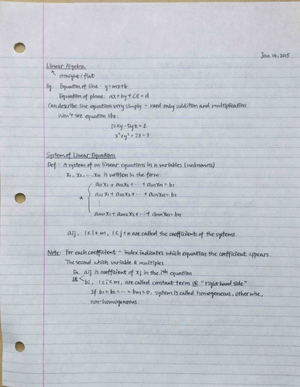 Jan. 14, 2015
Linear Algebra
↖ straight + flat
Eg. Equation of line: y=mx+b
Equation of plane: ax+by+cz=d
Can describe line equation very simply - need only addition and multiplication
Won't see equation like:
x²+y²+z³=3
System of Linear Equations
Def: A system of m linear equations in n variables (unknowns)
x₁, x₂, ..., xₙ is written in the form:
a₁₁x₁ + a₁₂x₂ + ... + a₁ₙxₙ = b₁
am₁x₁ + am₂x₂ + ... + amnxn = bm
aij, 1≤i≤m, 1≤j≤n are called the coefficients of the systems.
Note: For each coefficient - index indicates which equation the coefficient appears.
The second which variable it multiplies
Ex. aij is coefficient of xj in the iᵗʰ equation
bi, 1≤i≤m, are called constant terms OR "right hand side"
If b₁=b₂=...=bm=0, system is called homogeneous, otherwise,
non-homogeneous.